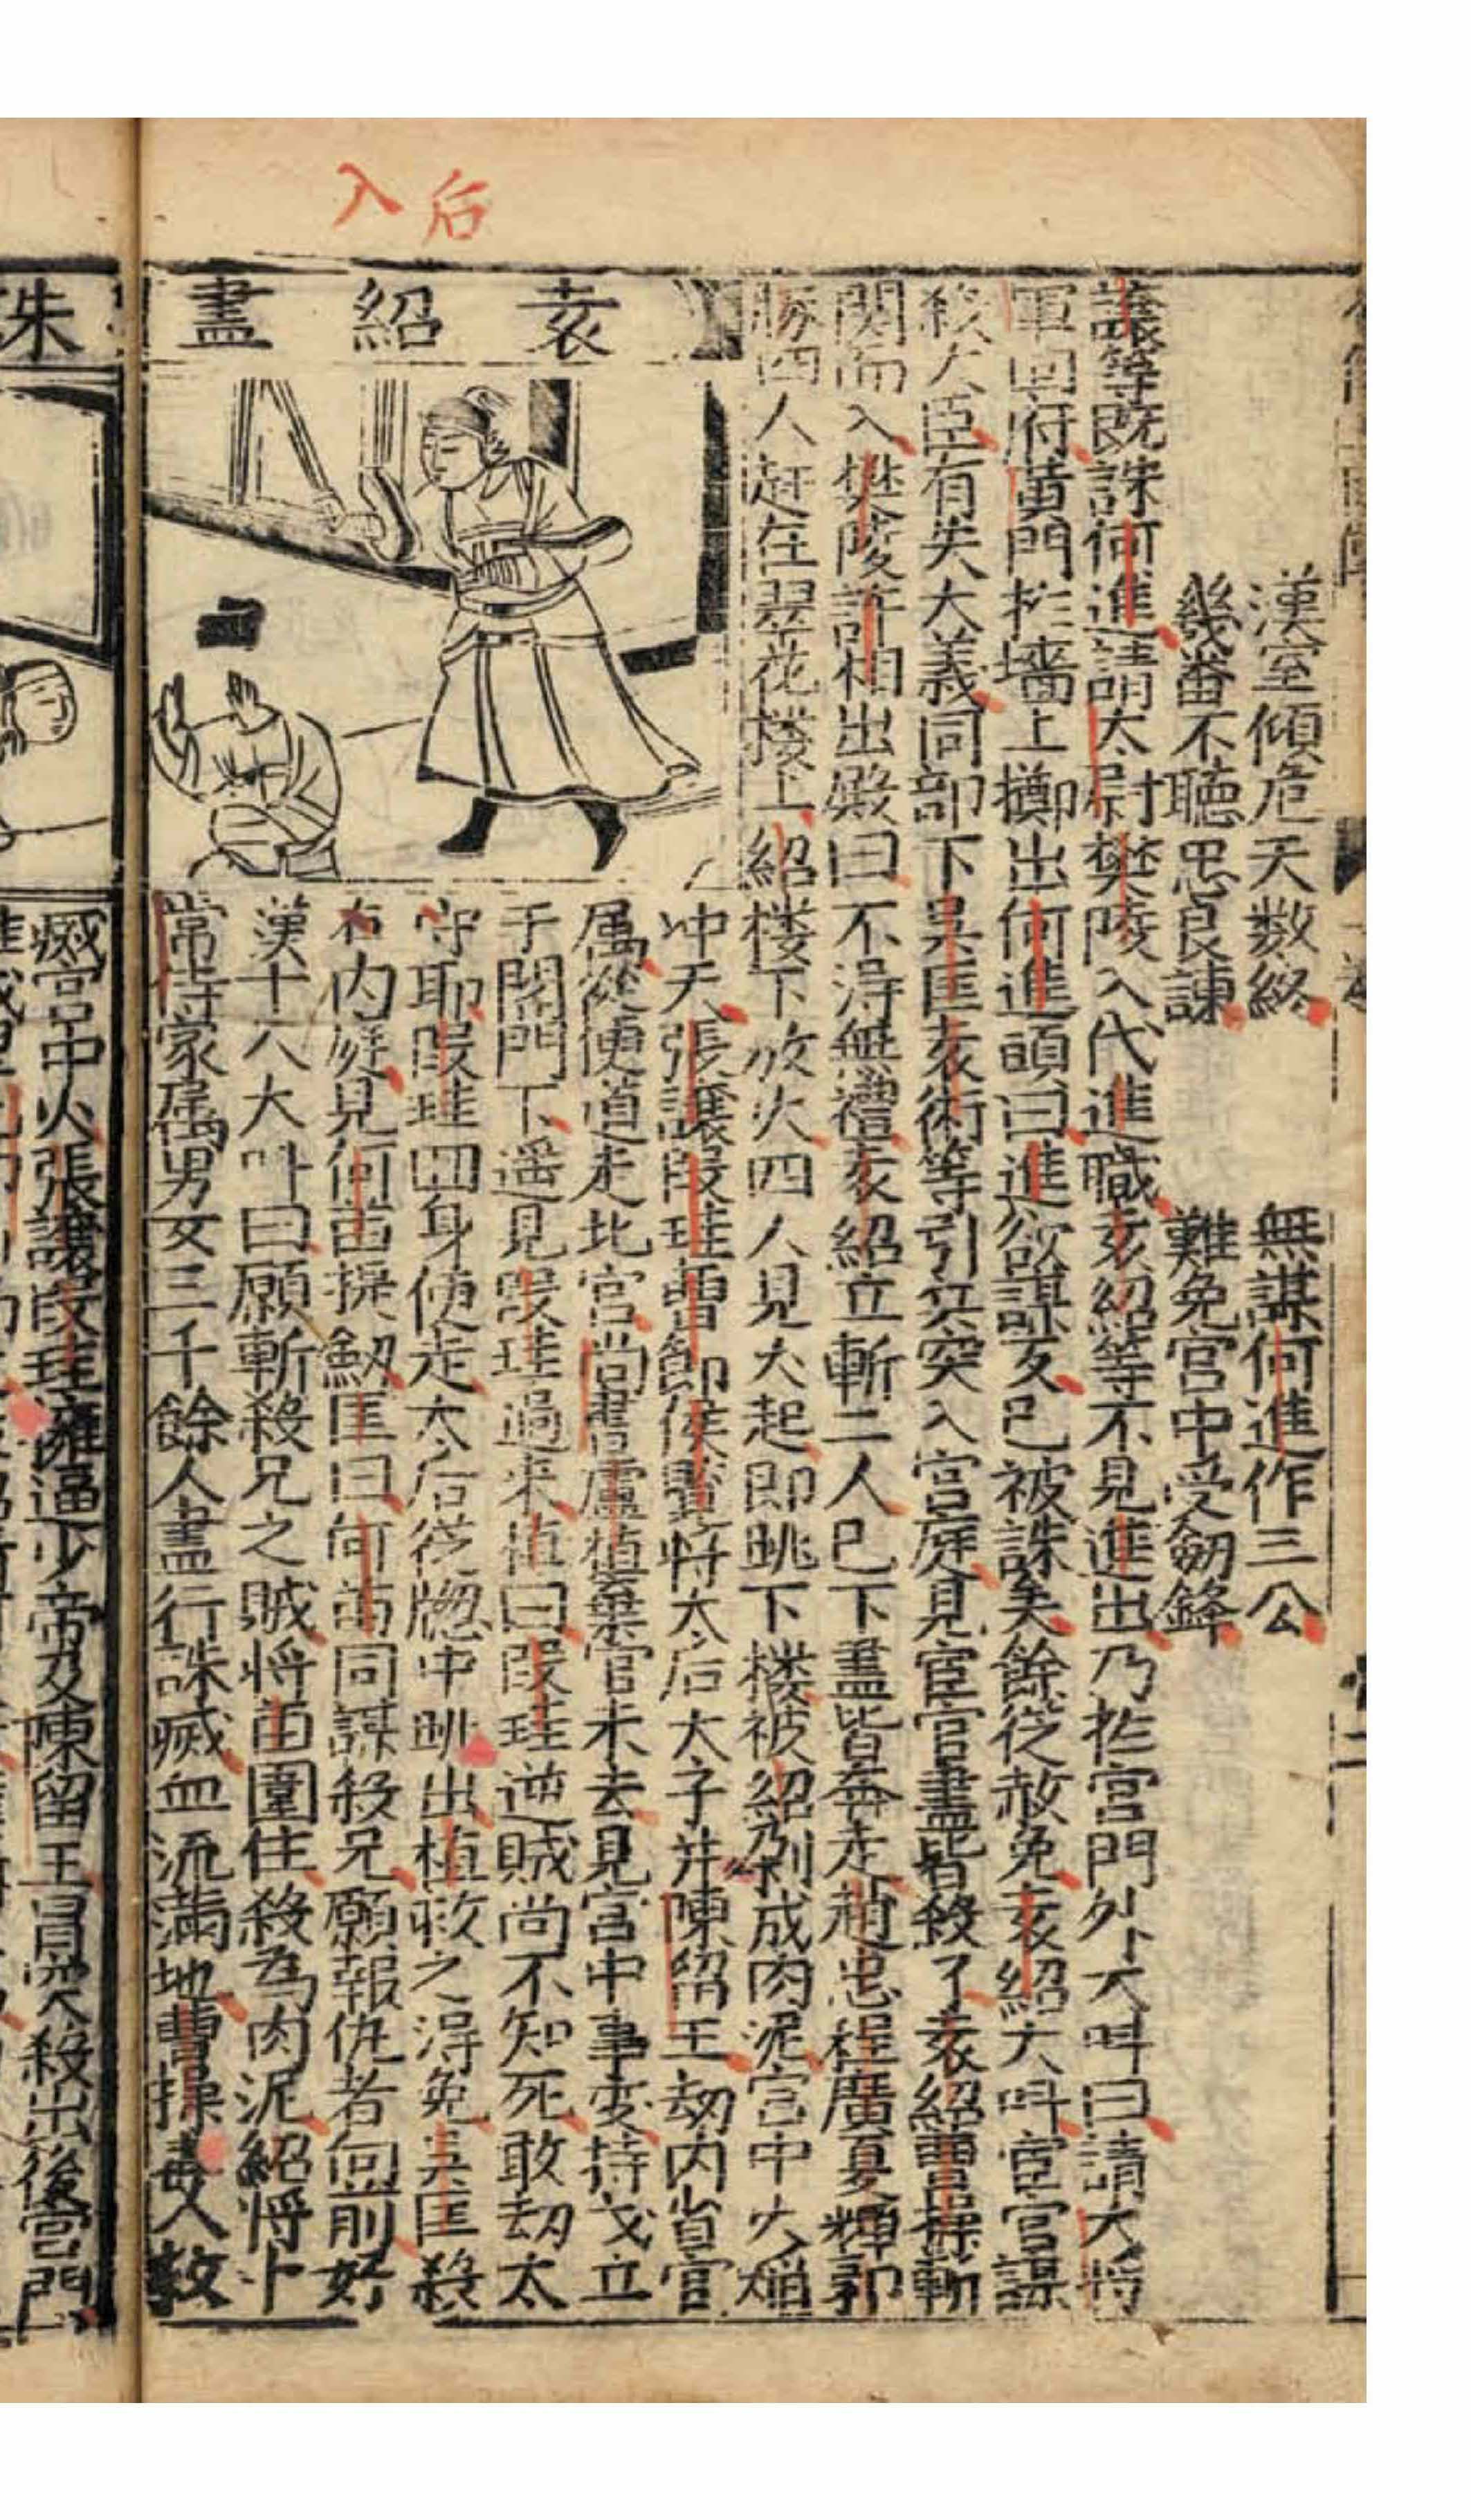 后入
漢室傾危天数終　無謀何進作三公
幾番不聽忠良諫　難免宮中受劒鋒
讓等既誅何進請太尉樊陵入代進職袁紹等不見進出乃在宮門外大呌曰請大将
軍回府黃門於墻上擲出何進頭曰進欲謀反已被誅矣餘從赦免袁紹大呌宦官謀
殺大臣有失大義同部下吳匡袁術等引兵突入宮庭見宦官盡皆殺了袁紹曹操斬
関而入樊陵許相出殿曰不淂無禮袁紹立斬二人已下盡皆奔走趙忠程廣夏輝郭
勝四人赶在翠花楼上紹楼下放火四人見火起即跳下楼被紹剁成肉泥宮中火焰
冲天張讓段珪曹節侯覽将太后太子并陳留王刼内省官
属從便道走北宮尚書盧植棄官未去見宮中事变持戈立
于閣門下遥見段珪過来植曰段珪逆賊尚不知死敢刼太
守耶段珪回身便走太后從牕中跳出植救之淂免吳匡殺
在内庭見何苗提劒匡曰何苗同謀殺兄願報仇者向前好
漢十八大叫曰願斬殺兄之賊将苗圍住殺為肉泥紹将十
常侍家属男女三千餘人盡行誅㓕血流滿地曹操毒人救
袁紹盡
誅
㓕宮中火張讓段珪擁逼少帝及陳留王冒突殺出後宮門